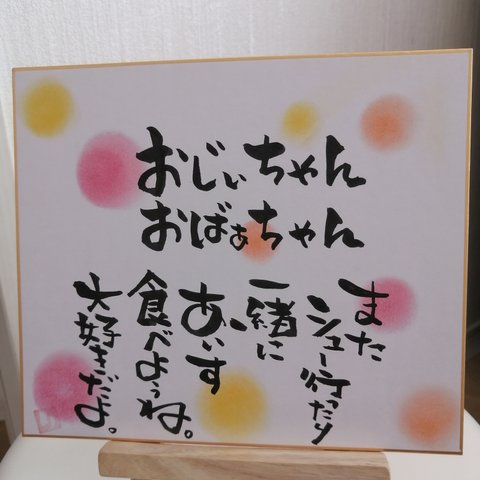 おじぃちゃん
おばぁちゃん
また
シュー行ったり
一緒に
あいす
食べようね。
大好きだよ。